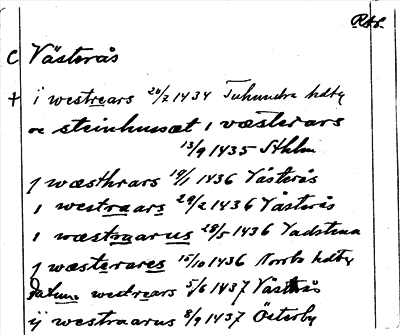 RAp.
C Västerås
+ i westrears 20/2 1434 Tuhundra hdby
oc steinhusset i væsterars
13/9 1435 Sthlm
j wæsthrars 19/1 1436 Västerås
i westraars 29/2 1436 Västerås
i wæstraarus 28/5 1436 Vadstena
j wæsterares 15/10 1436 Norrbo hdby
Datum westrears 5/6 1437 Västerås
ij westraarus 8/9 1437 Österby